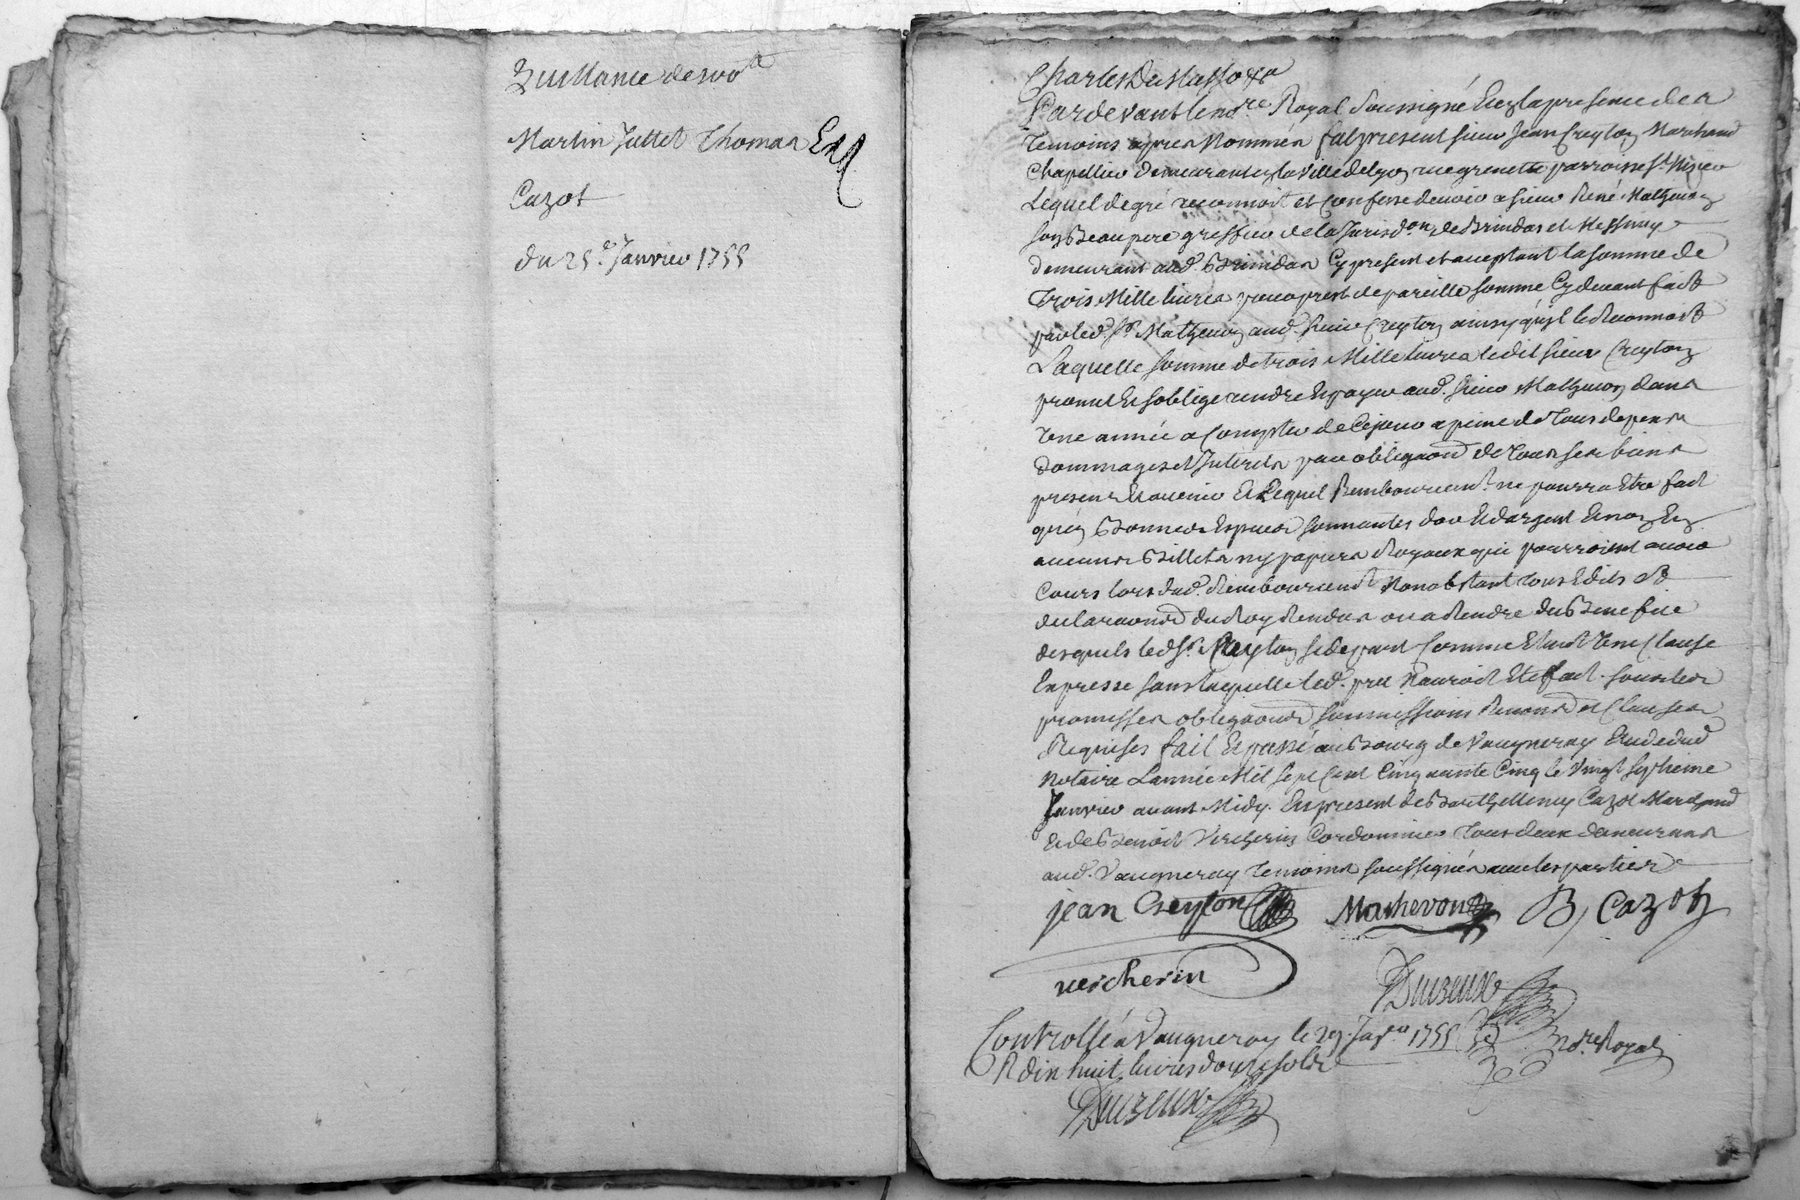 Quittance de 500 ll
Martin Juttet Thomas Et
Cazot
du 25e Janvier 1755
Pardevant le no.re Royal soussigné Et en la presence des
Temoins apres Nommés fut present sieur Jean Creyton Marchand
Chapellier demeurant en la Ville de Lyon rue grenette parroisse St Nizier
Lequel de gré reconnoit et Confesse devoir a sieur René Mathevon
son Beaupere greffier de la Jurisd.on de Brindas et Messimy
demeurant aud. Brindas Cy present et acceptant la somme de
Trois Mille livres pour prest de pareille somme Cy devant fait
par led. Sr. Mathevon aud. sieur Creyton ainsy qu'il le Reconnoit
Laquelle somme de trois Mille livres ledit sieur Creyton
promet Et s'oblige rendre Et payer aud. sieur Mathevon dans
Une année a Compter de Cejour a peine de Tous depens
dommages et Interets par obligaon de Tous ses biens
presens Et avenir Et Lequel Remboursemt. ne pourra Etre fait
qu'en Bonnes Especes sonnantes d'or Et d'argent Et non En
aucuns Billets ny papiers Royaux qui pourroient avoir
Cours lors dud. Remboursemt Nonobstant tous Edits Et
declaraons du Roy Rendus ou a Rendre du Benefice
desquels led Sr. Creyton se depart Comme Etant Une Clause
Expresse sans laquelle led. pret N'auroit Eté fait. sous les
promesses obligaons soumissions Renonons et Clauses
Requises fait Et passé au Bourg de Vaugneray Etude dud
Notaire L'année Mil Sept Cent Cinquante Cinq le Vingt
Janvier avant Midy. En present de Barthellemy Cazot Marchand
Et de Benoit Vercherin Cordonnier Tous deux demeurans
aud. Vaugneray Temoins soussignés avec les parties
jean Creyton Mathevon B, Cazot
vercherin
Controllé a Vaugneray le 29. Janv.er 1755
R dix huit livres douze sols
no.re Royal